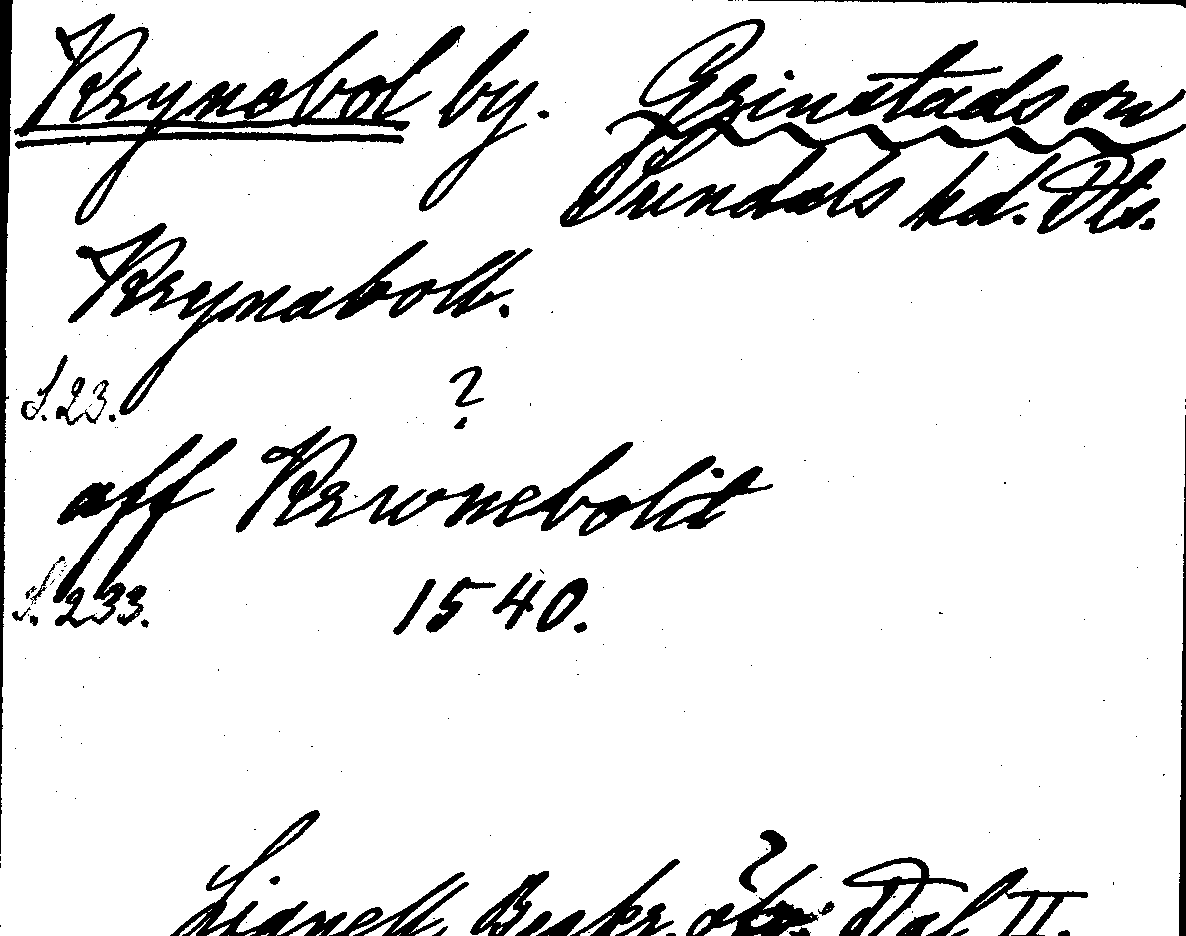 Krynobol by. Grinstads sn
Sundals hd. Dls.
Krynabolt.
S. 23. ?
aff Krwnebolit
S. 233. 1540.
Lignell, Beskr. öfv. Dal II.